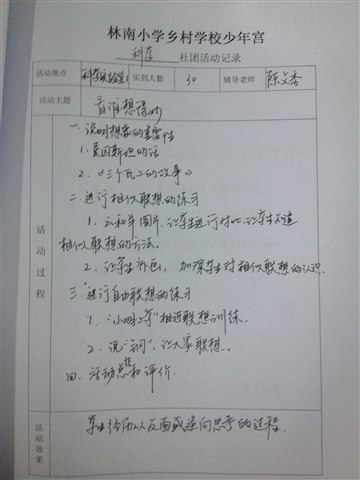 林南小学乡村学校少年宫
科学 社团活动记录
活动地点 科学实验室 实到人数 30 辅导老师 陈文香
活动主题 看谁想得妙
活动过程
一、说明想象的重要性
1. 爱因斯坦的话
2.《三个瓦工的故事》
二、进行相似联想的练习
1. 云和羊图片,让学生进行对比,让学生知道
相似联想的方法。
2. 让学生补画,加深学生对相似联想的认识.
三、进行自由联想的练习
1."小明上学"相近联想训练.
2. 说"钢",让大家联想。
四、活动总结和评价.
活动效果
学生经历从反面或逆向思考的过程.